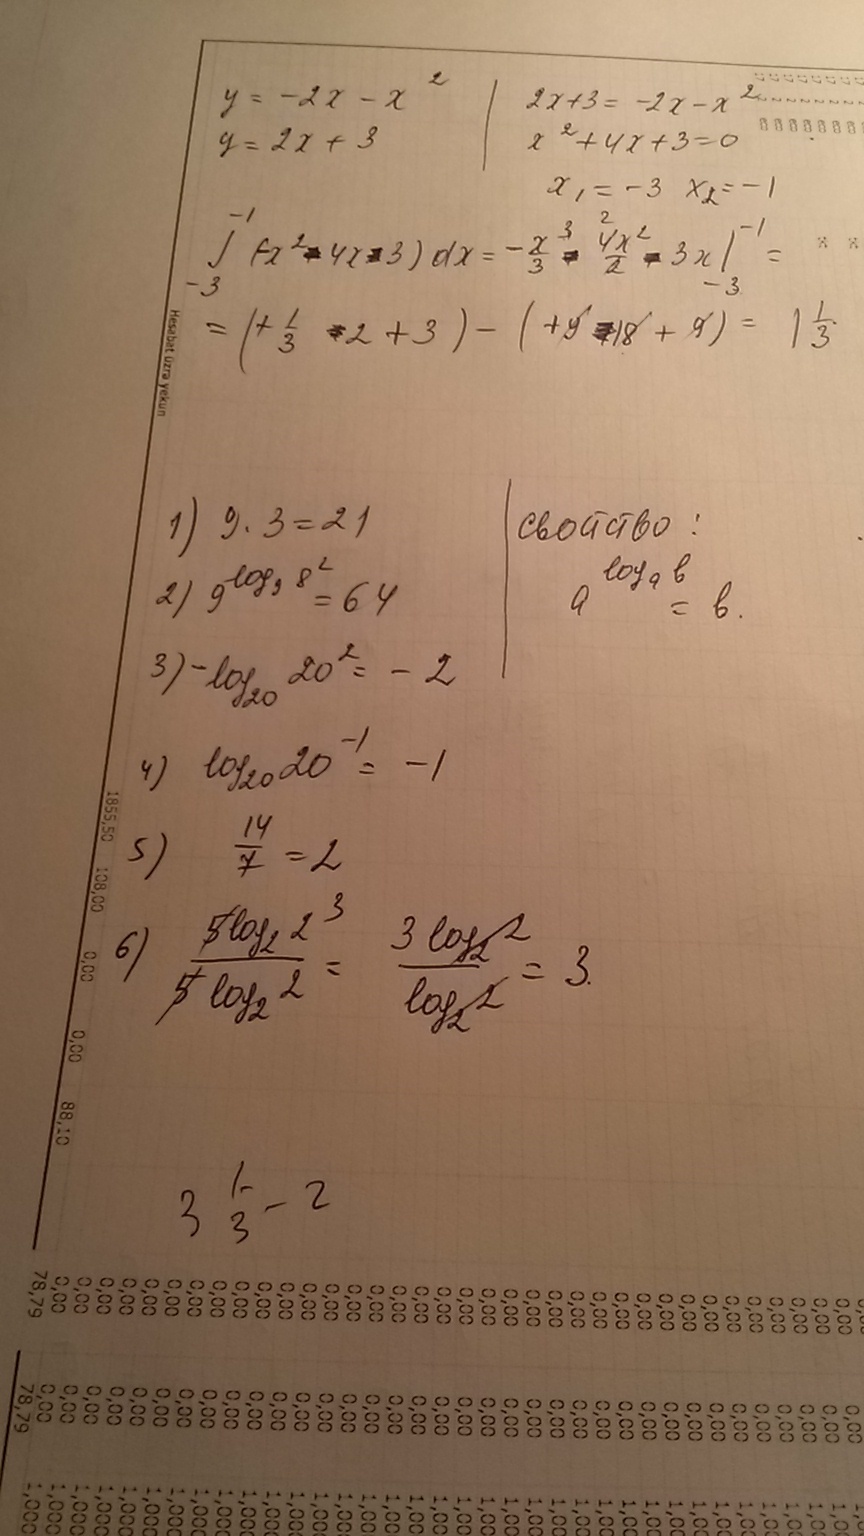 y = -2x - x²
y = 2x + 3
2x+3 = -2x - x²
x² + 4x + 3 = 0
x₁ = -3 x₂ = -1
∫₋₃⁻¹ (-x² - 4x - 3) dx = -x³/3 - 4x²/2 - 3x |₋₃⁻¹ =
= (+1/3 - 2 + 3) - (+9 - 18 + 9) = 1 1/3
Hesabat üzrə yekun
1) 9 · 3 = 21
2) 9^log₉ 8² = 64
3) -log₂₀ 20² = -2
4) log₂₀ 20⁻¹ = -1
5) 14/7 = 2
6) 5log₂ 2³ / 5 log₂ 2 = 3 log₂ 2 / log₂ 2 = 3.
свойство :
a^logₐ b = b.
3 1/3 - 2
1855,50 108,00 0,00 0,00 88,10
78,79 0,00 0,00 0,00 0,00 0,00 0,00 0,00 0,00 0,00 0,00 0,00 0,00 0,00 0,00 0,00 0,00 0,00 0,00 0,00 0,00 0,00 0,00 0,00 0,00 0,00 0,00 0,00 0,00 0,00 0,00 0,00 0,00 0,00 0,00 0,00
78,79 0,00 0,00 0,00 0,00 0,00 0,00 0,00 0,00 0,00 0,00 0,00 0,00 0,00 0,00 0,00 0,00 0,00 0,00 0,00 0,00 0,00 0,00 0,00 0,00 0,00 0,00 0,00 0,00 0,00 0,00 0,00 0,00 0,00 0,00 0,00
1,000 1,000 1,000 1,000 1,000 1,000 1,000 1,000 1,000 1,000 1,000 1,000 1,000 1,000 1,000 1,000 1,000 1,000 1,000 1,000 1,000 1,000 1,000 1,000 1,000 1,000 1,000 1,000 1,000 1,000 1,000 1,000 1,000 1,000